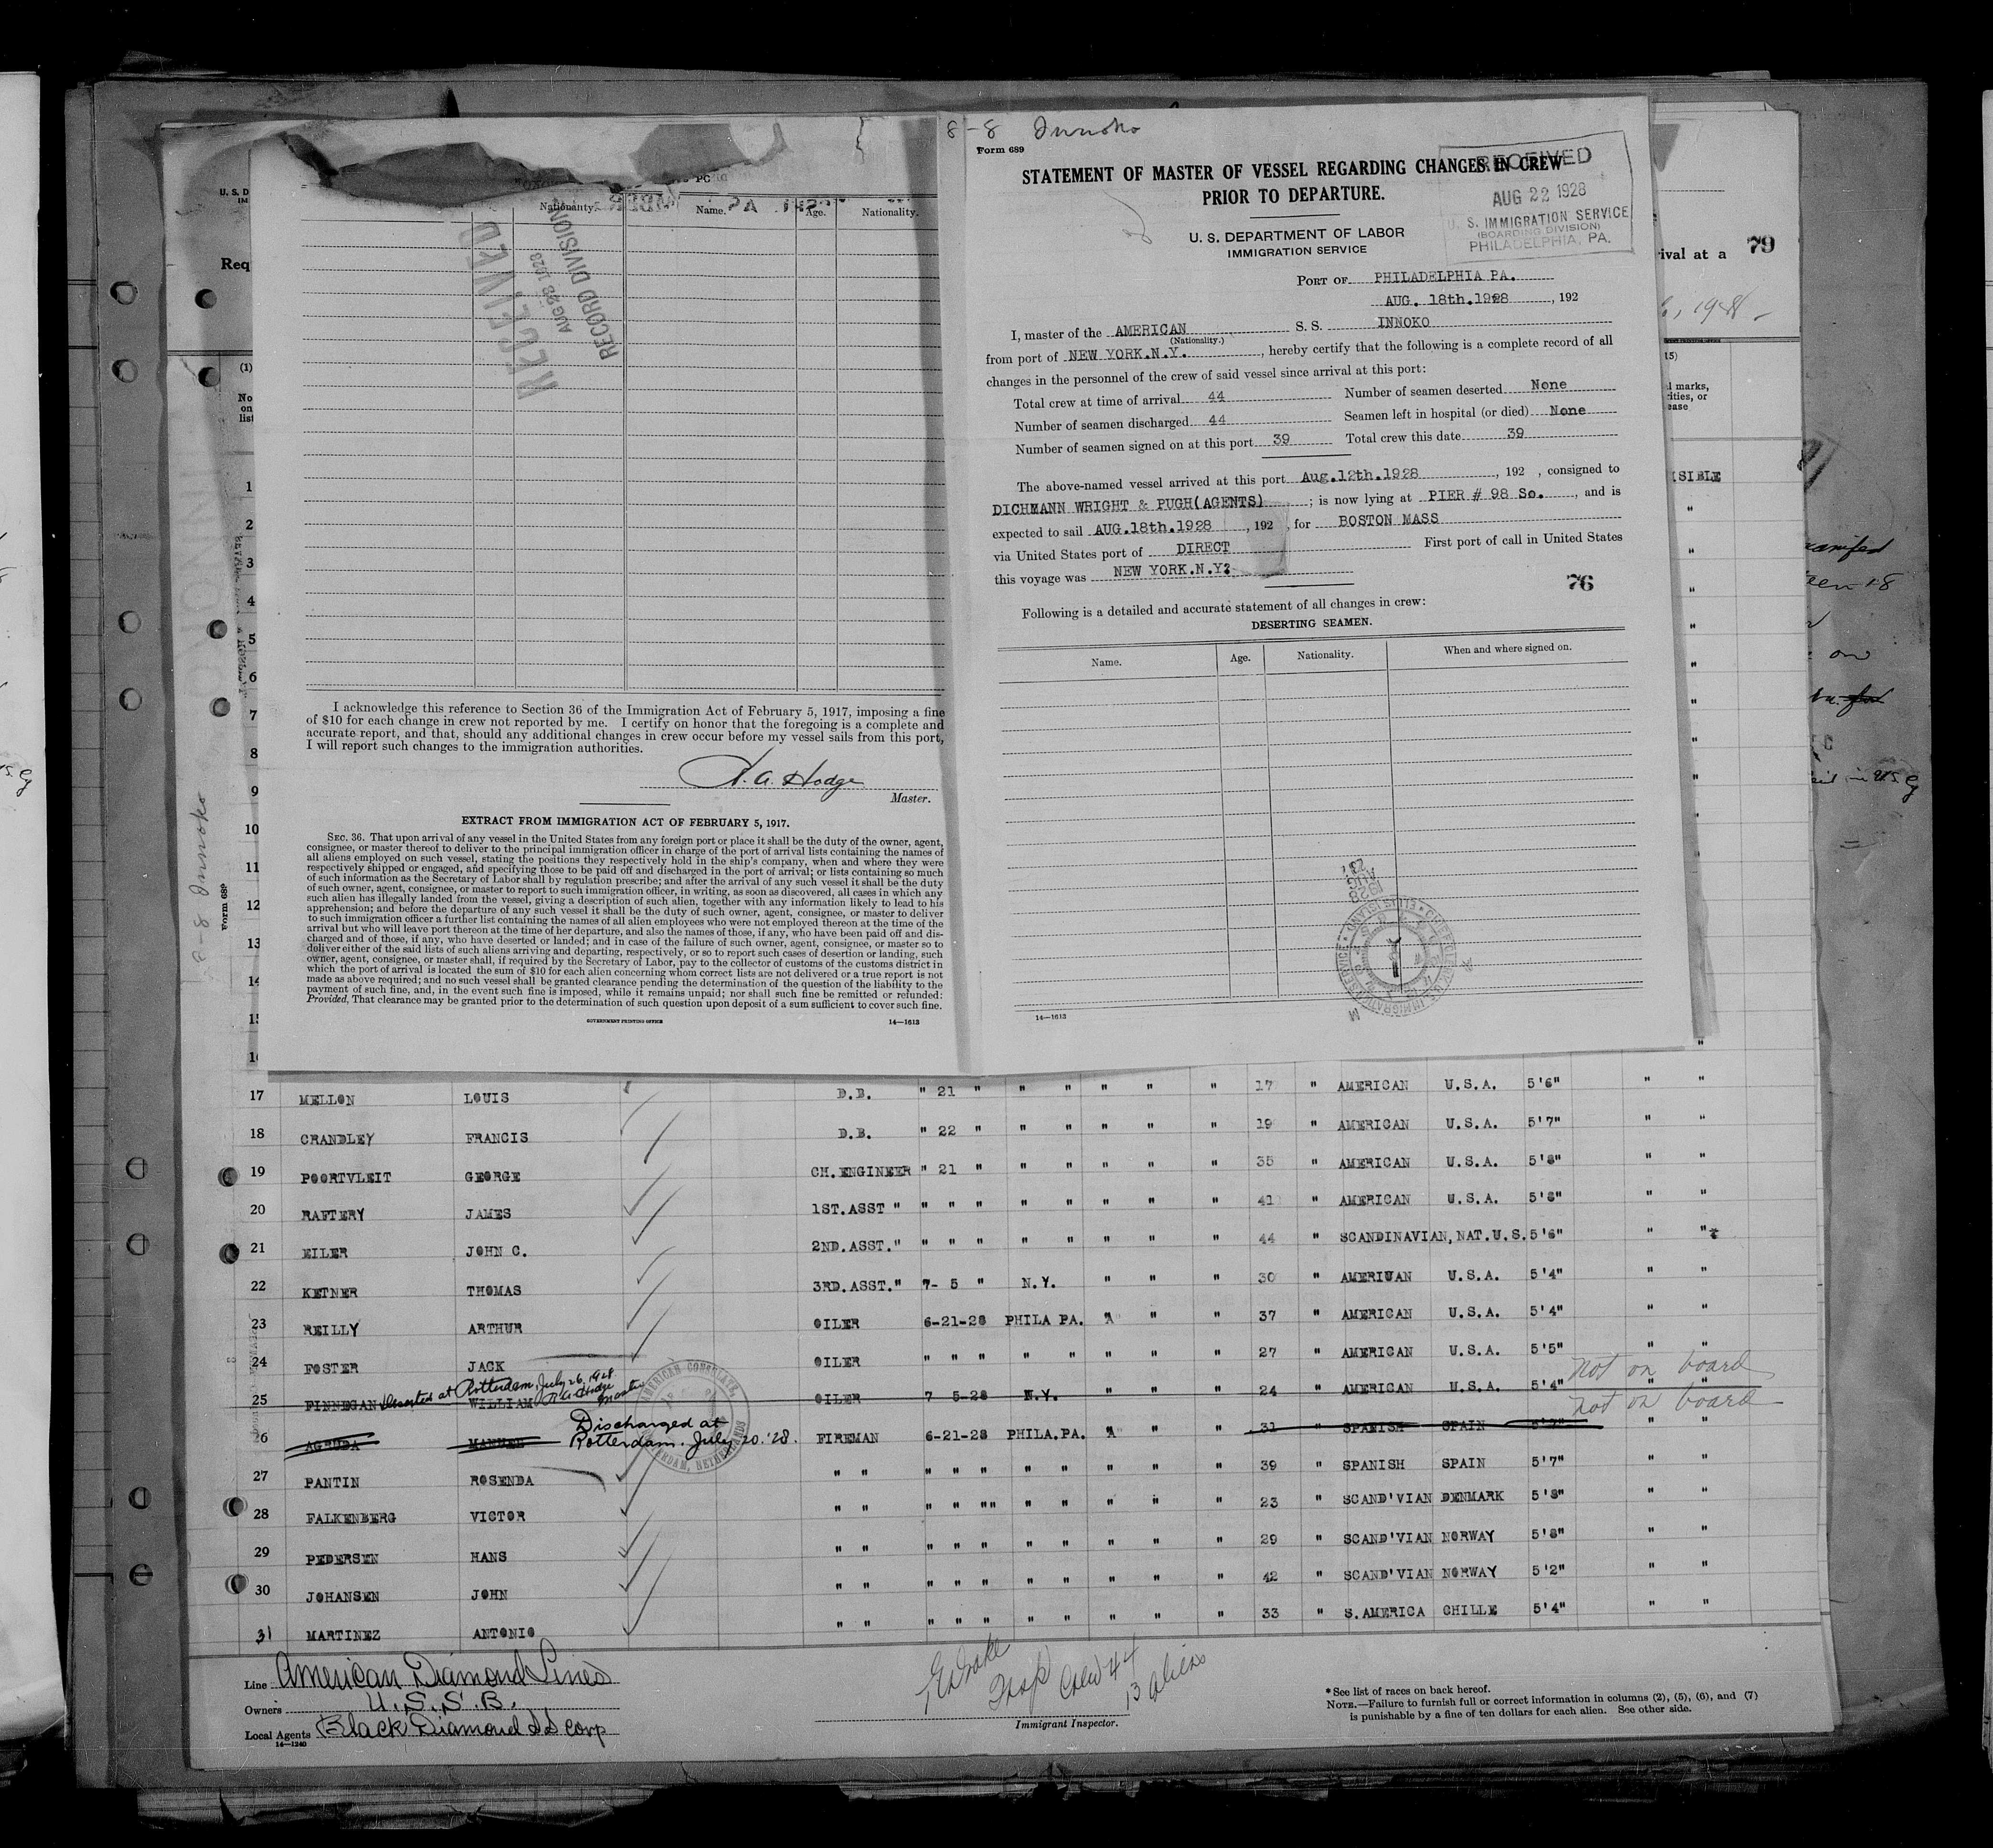 8-8 Innoko
Form 689
STATEMENT OF MASTER OF VESSEL REGARDING CHANGES IN CREW
PRIOR TO DEPARTURE.
RECEIVED
AUG 22 1928
U. S. IMMIGRATION SERVICE
(BOARDING DIVISION)
PHILADELPHIA, PA.
U. S. DEPARTMENT OF LABOR
IMMIGRATION SERVICE
PORT OF PHILADELPHIA PA.
AUG. 18th.1928, 192
I, master of the AMERICAN S. S. INNOKO
(Nationality.)
from port of NEW YORK.N.Y., hereby certify that the following is a complete record of all
changes in the personnel of the crew of said vessel since arrival at this port:
Total crew at time of arrival 44 Number of seamen deserted None
Number of seamen discharged 44 Seamen left in hospital (or died) None
Number of seamen signed on at this port 39 Total crew this date 39
The above-named vessel arrived at this port Aug.12th.1928, 192 , consigned to
DICHMANN WRIGHT & PUGH(AGENTS); is now lying at PIER # 98 So., and is
expected to sail AUG.18th.1928, 192 , for BOSTON MASS
via United States port of DIRECT First port of call in United States
this voyage was NEW YORK.N.Y?
76
Following is a detailed and accurate statement of all changes in crew:
DESERTING SEAMEN.
Name. Age. Nationality. When and where signed on.
14—1613
Nationality. Name. Age. Nationality.
RECEIVED
AUG 28 1928
RECORD DIVISION
I acknowledge this reference to Section 36 of the Immigration Act of February 5, 1917, imposing a fine
of $10 for each change in crew not reported by me. I certify on honor that the foregoing is a complete and
accurate report, and that, should any additional changes in crew occur before my vessel sails from this port,
I will report such changes to the immigration authorities.
A. Hodge
Master.
EXTRACT FROM IMMIGRATION ACT OF FEBRUARY 5, 1917.
SEC. 36. That upon arrival of any vessel in the United States from any foreign port or place it shall be the duty of the owner, agent,
consignee, or master thereof to deliver to the principal immigration officer in charge of the port of arrival lists containing the names of
all aliens employed on such vessel, stating the positions they respectively hold in the ship's company, when and where they were
respectively shipped or engaged, and specifying those to be paid off and discharged in the port of arrival; or lists containing so much
of such information as the Secretary of Labor shall by regulation prescribe; and after the arrival of any such vessel it shall be the duty
of such owner, agent, consignee, or master to report to such immigration officer, in writing, as soon as discovered, all cases in which any
such alien has illegally landed from the vessel, giving a description of such alien, together with any information likely to lead to his
apprehension; and before the departure of any such vessel it shall be the duty of such owner, agent, consignee, or master to deliver
to such immigration officer a further list containing the names of all alien employees who were not employed thereon at the time of the
arrival but who will leave port thereon at the time of her departure, and also the names of those, if any, who have been paid off and dis-
charged and of those, if any, who have deserted or landed; and in case of the failure of such owner, agent, consignee, or master so to
deliver either of the said lists of such aliens arriving and departing, respectively, or so to report such cases of desertion or landing, such
owner, agent, consignee, or master shall, if required by the Secretary of Labor, pay to the collector of customs of the customs district in
which the port of arrival is located the sum of $10 for each alien concerning whom correct lists are not delivered or a true report is not
made as above required; and no such vessel shall be granted clearance pending the determination of the question of the liability to the
payment of such fine, and, in the event such fine is imposed, while it remains unpaid; nor shall such fine be remitted or refunded:
Provided, That clearance may be granted prior to the determination of such question upon deposit of a sum sufficient to cover such fine.
GOVERNMENT PRINTING OFFICE 14—1613
8-8 Innoko
Form 689
U. S. D
Req
rival at a 79
(1)
1
2
3
4
5
6
7
8
9
10
11
12
13
14
17 MELLON LOUIS D.B. " 21 " " " " " " 17 " AMERICAN U.S.A. 5'6" " "
18 CRANDLEY FRANCIS D.B. " 22 " " " " " " 19 " AMERICAN U.S.A. 5'7" " "
19 POORTVLEIT GEORGE CH.ENGINEER " 21 " " " " " " 35 " AMERICAN U.S.A. 5'8" " "
20 RAFTERY JAMES 1ST.ASST " " " " " " " " " 41 " AMERICAN U.S.A. 5'8" " "
21 EILER JOHN C. 2ND.ASST." " " " " " " " " 44 " SCANDINAVIAN,NAT.U.S. 5'6" " "
22 KETNER THOMAS 3RD.ASST." 7- 5 " N.Y. " " " 30 " AMERIUAN U.S.A. 5'4" " "
23 REILLY ARTHUR OILER 6-21-28 PHILA PA. " " " 37 " AMERICAN U.S.A. 5'4" " "
24 FOSTER JACK OILER " " " " " " " " 27 " AMERICAN U.S.A. 5'5" " "
25 FINNEGAN Deserted at Rotterdam, July 26, 1928 WILLIAM Hodge Master OILER 7 5-28 N.Y. " " " 24 " AMERICAN U.S.A. 5'4" " " not on board
26 AGRUDA MANUEL Discharged at Rotterdam. July 20.'28. FIREMAN 6-21-28 PHILA.PA. " " " 31 SPANISH SPAIN " " not on board
27 PANTIN ROSENDA " " " " " " " " " " 39 " SPANISH SPAIN 5'7" " "
28 FALKENBERG VICTOR " " " " "" " " " " " 23 " SCAND'VIAN DENMARK 5'8" " "
29 PEDERSEN HANS " " " " " " " " " " 29 " SCAND'VIAN NORWAY 5'8" " "
30 JOHANSEN JOHN " " " " " " " " " " 42 " SCAND'VIAN NORWAY 5'2" " "
31 MARTINEZ ANTONIO " " " " " " " " " " 33 " S.AMERICA CHILLE 5'4" " "
Line American Diamond Lines
Owners U.S.S.B.
Local Agents Black Diamond SS Corp
14—1240
Crew 44
13 aliens
Immigrant Inspector.
* See list of races on back hereof.
NOTE.—Failure to furnish full or correct information in columns (2), (5), (6), and (7)
is punishable by a fine of ten dollars for each alien. See other side.